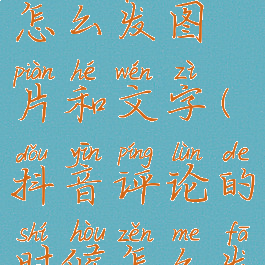 怎么发图
piàn hé wén zì
片和文字(
dǒu yīn píng lùn de
抖音评论的
shí hòu zěn me fā
时候怎么发